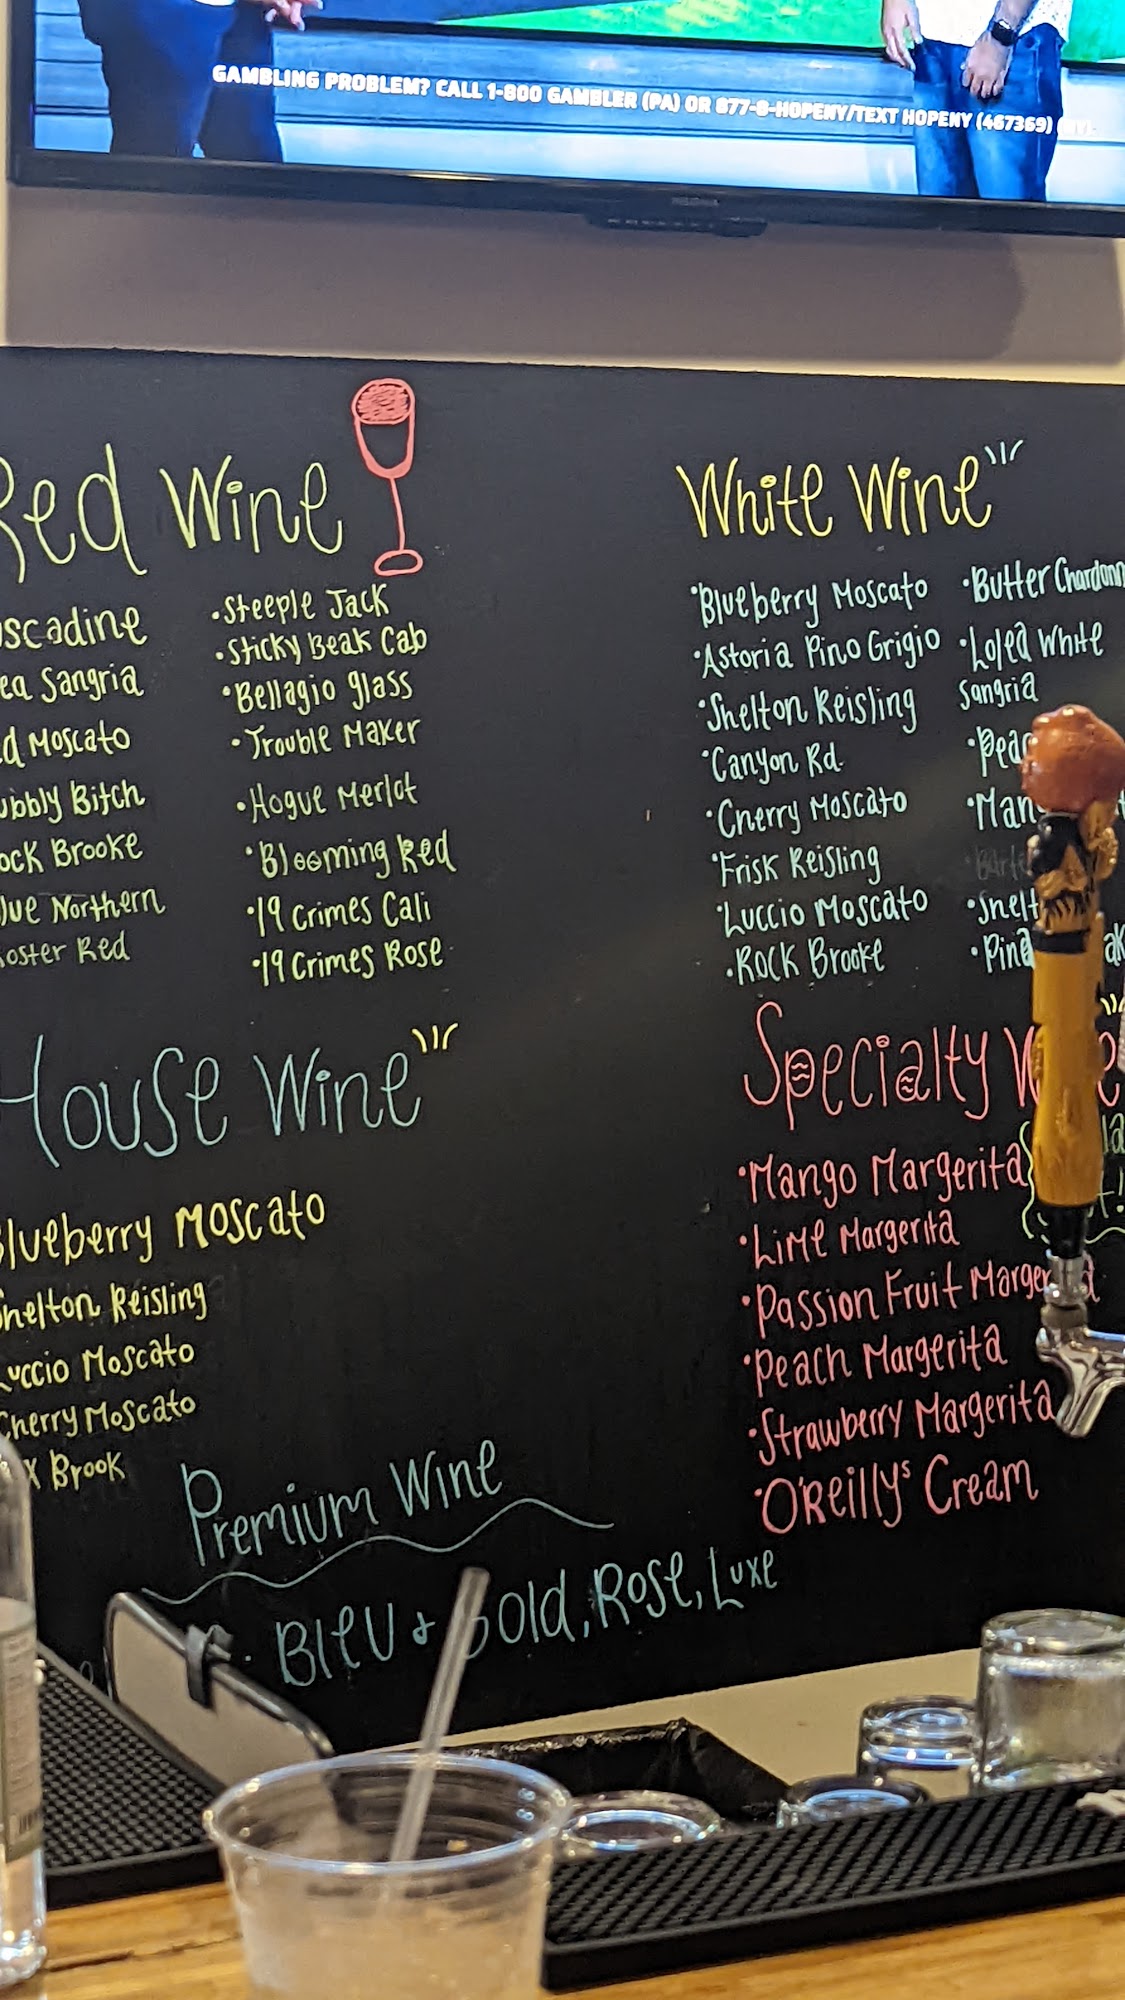 GAMBLING PROBLEM? CALL 1-800 GAMBLER (PA) OR 877-8-HOPENY/TEXT HOPENY (467369)
Red Wine
scadine
ea Sangria
d Moscato
ubbly Bitch
ock Brooke
lue Northern
oster Red
•Steeple Jack
•Sticky Beak Cab
•Bellagio glass
•Trouble Maker
•Hogue Merlot
•Blooming Red
•19 Crimes Cali
•19 Crimes Rose
White Wine
•Blueberry Moscato
•Astoria Pino Grigio
•Shelton Reisling
•Canyon Rd.
•Cherry Moscato
•Frisk Reisling
•Luccio Moscato
•Rock Brooke
•Butter Chardonn
•Loled White
Sangria
•Peac
•Man
•Shelt
•Pine
House Wine
Blueberry Moscato
Shelton Reisling
Luccio Moscato
Cherry Moscato
x Brook
Specialty W
•Mango Margerita
•Lime Margerita
•Passion Fruit Marge
•Peach Margerita
•Strawberry Margerita
•O'Reilly's Cream
Premium Wine
• Bleu + Gold, Rose, Luxe